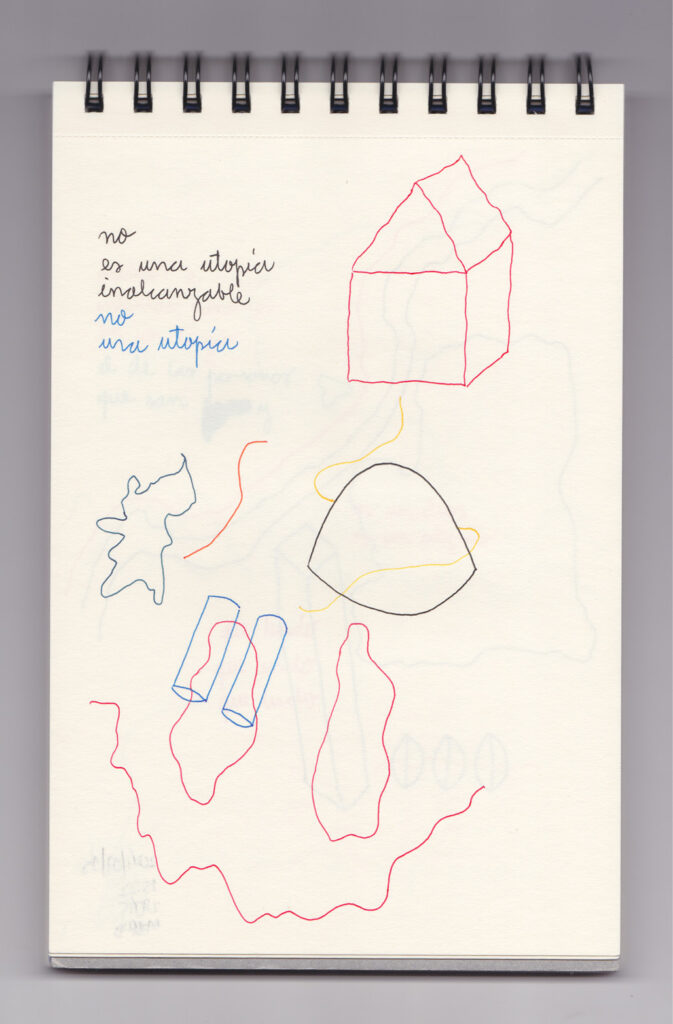 no
es una utopía
inalcanzable
no
una utopía